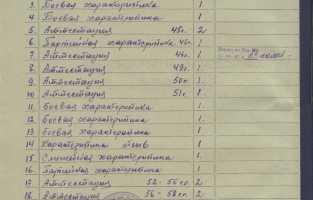 3. Боевая характеристика 1
4. Боевая характеристика 1
5. Аттестация 45г. 2
6. Партийная характеристика 46г. 1
7. Аттестация 47г. 1
8. Аттестация 49г. 1
9. Аттестация 50г. 1
10 Аттестация 51г. 1
11 Боевая характеристика 1
12 боевая характеристика 1
13 боевая характеристика 1
14 Характеристика отзыв 1
15 Служебная характеристика 1
16 Партийная характеристика 1
17. Аттестация 52-56гг. 2
18. Аттестация 56-58гг. 2